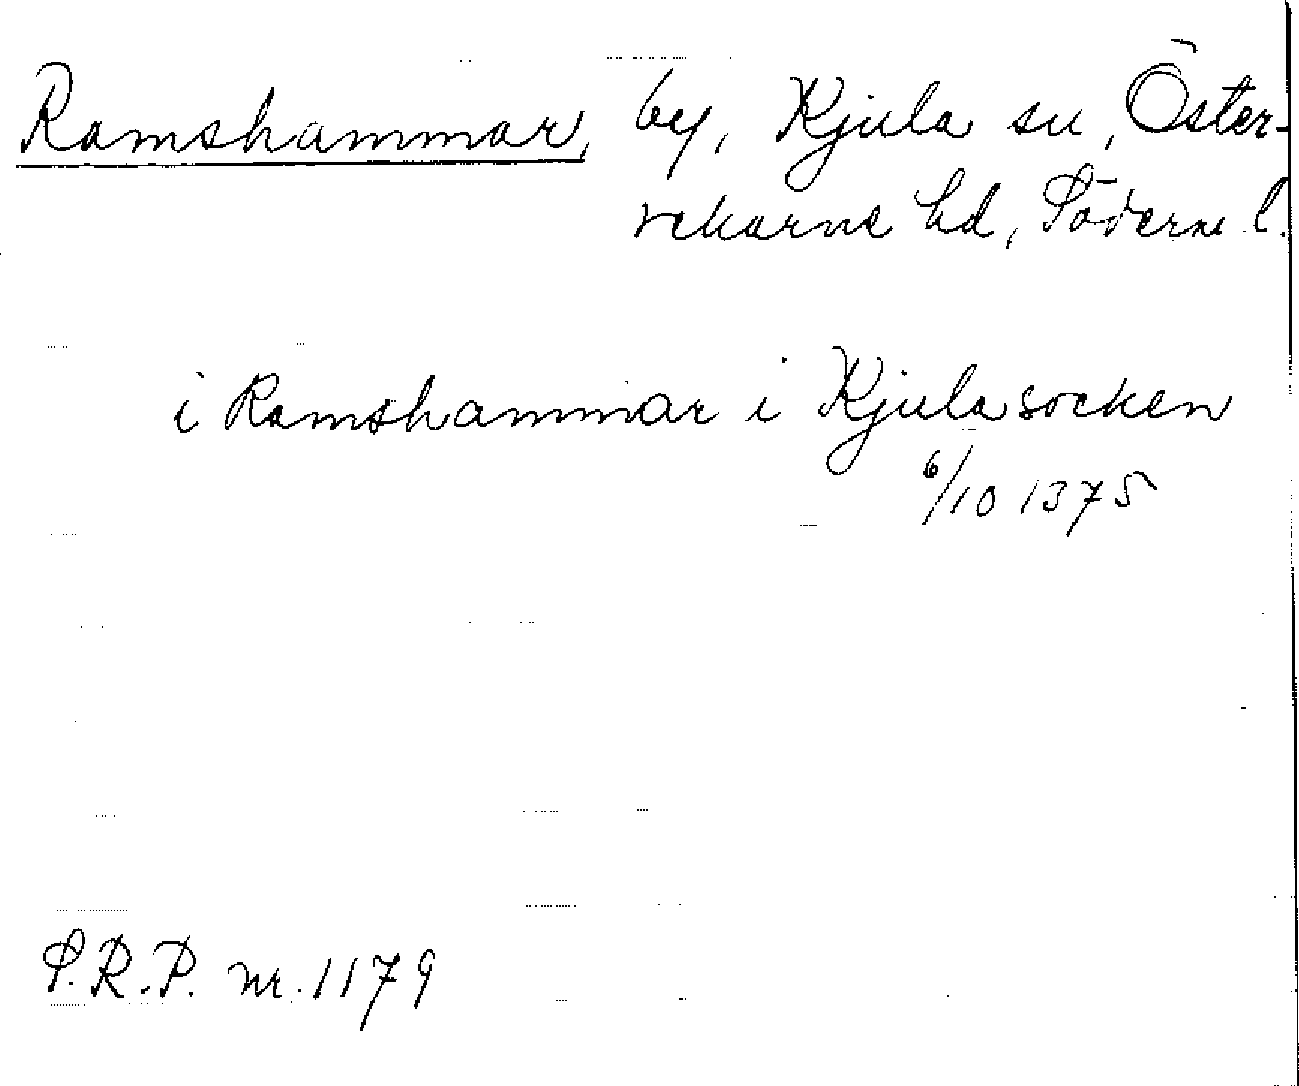 Ramshammar, by, Kjula sn, Öster-
rekarne hd, Söderm l.
i Ramshammar i Kjula socken
6/10 1375
S.R.P. nr. 1179